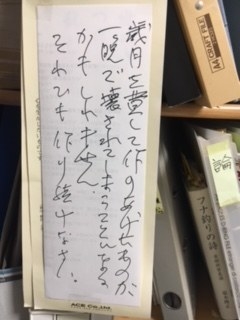 歳月を費して作りあげたものが
一晩で壊されてしまうことになる
かもしれません。
それでも作り続けなさい。
ACE CO.,LTD
A4 CRAFT FILE
フナ釣りの詩